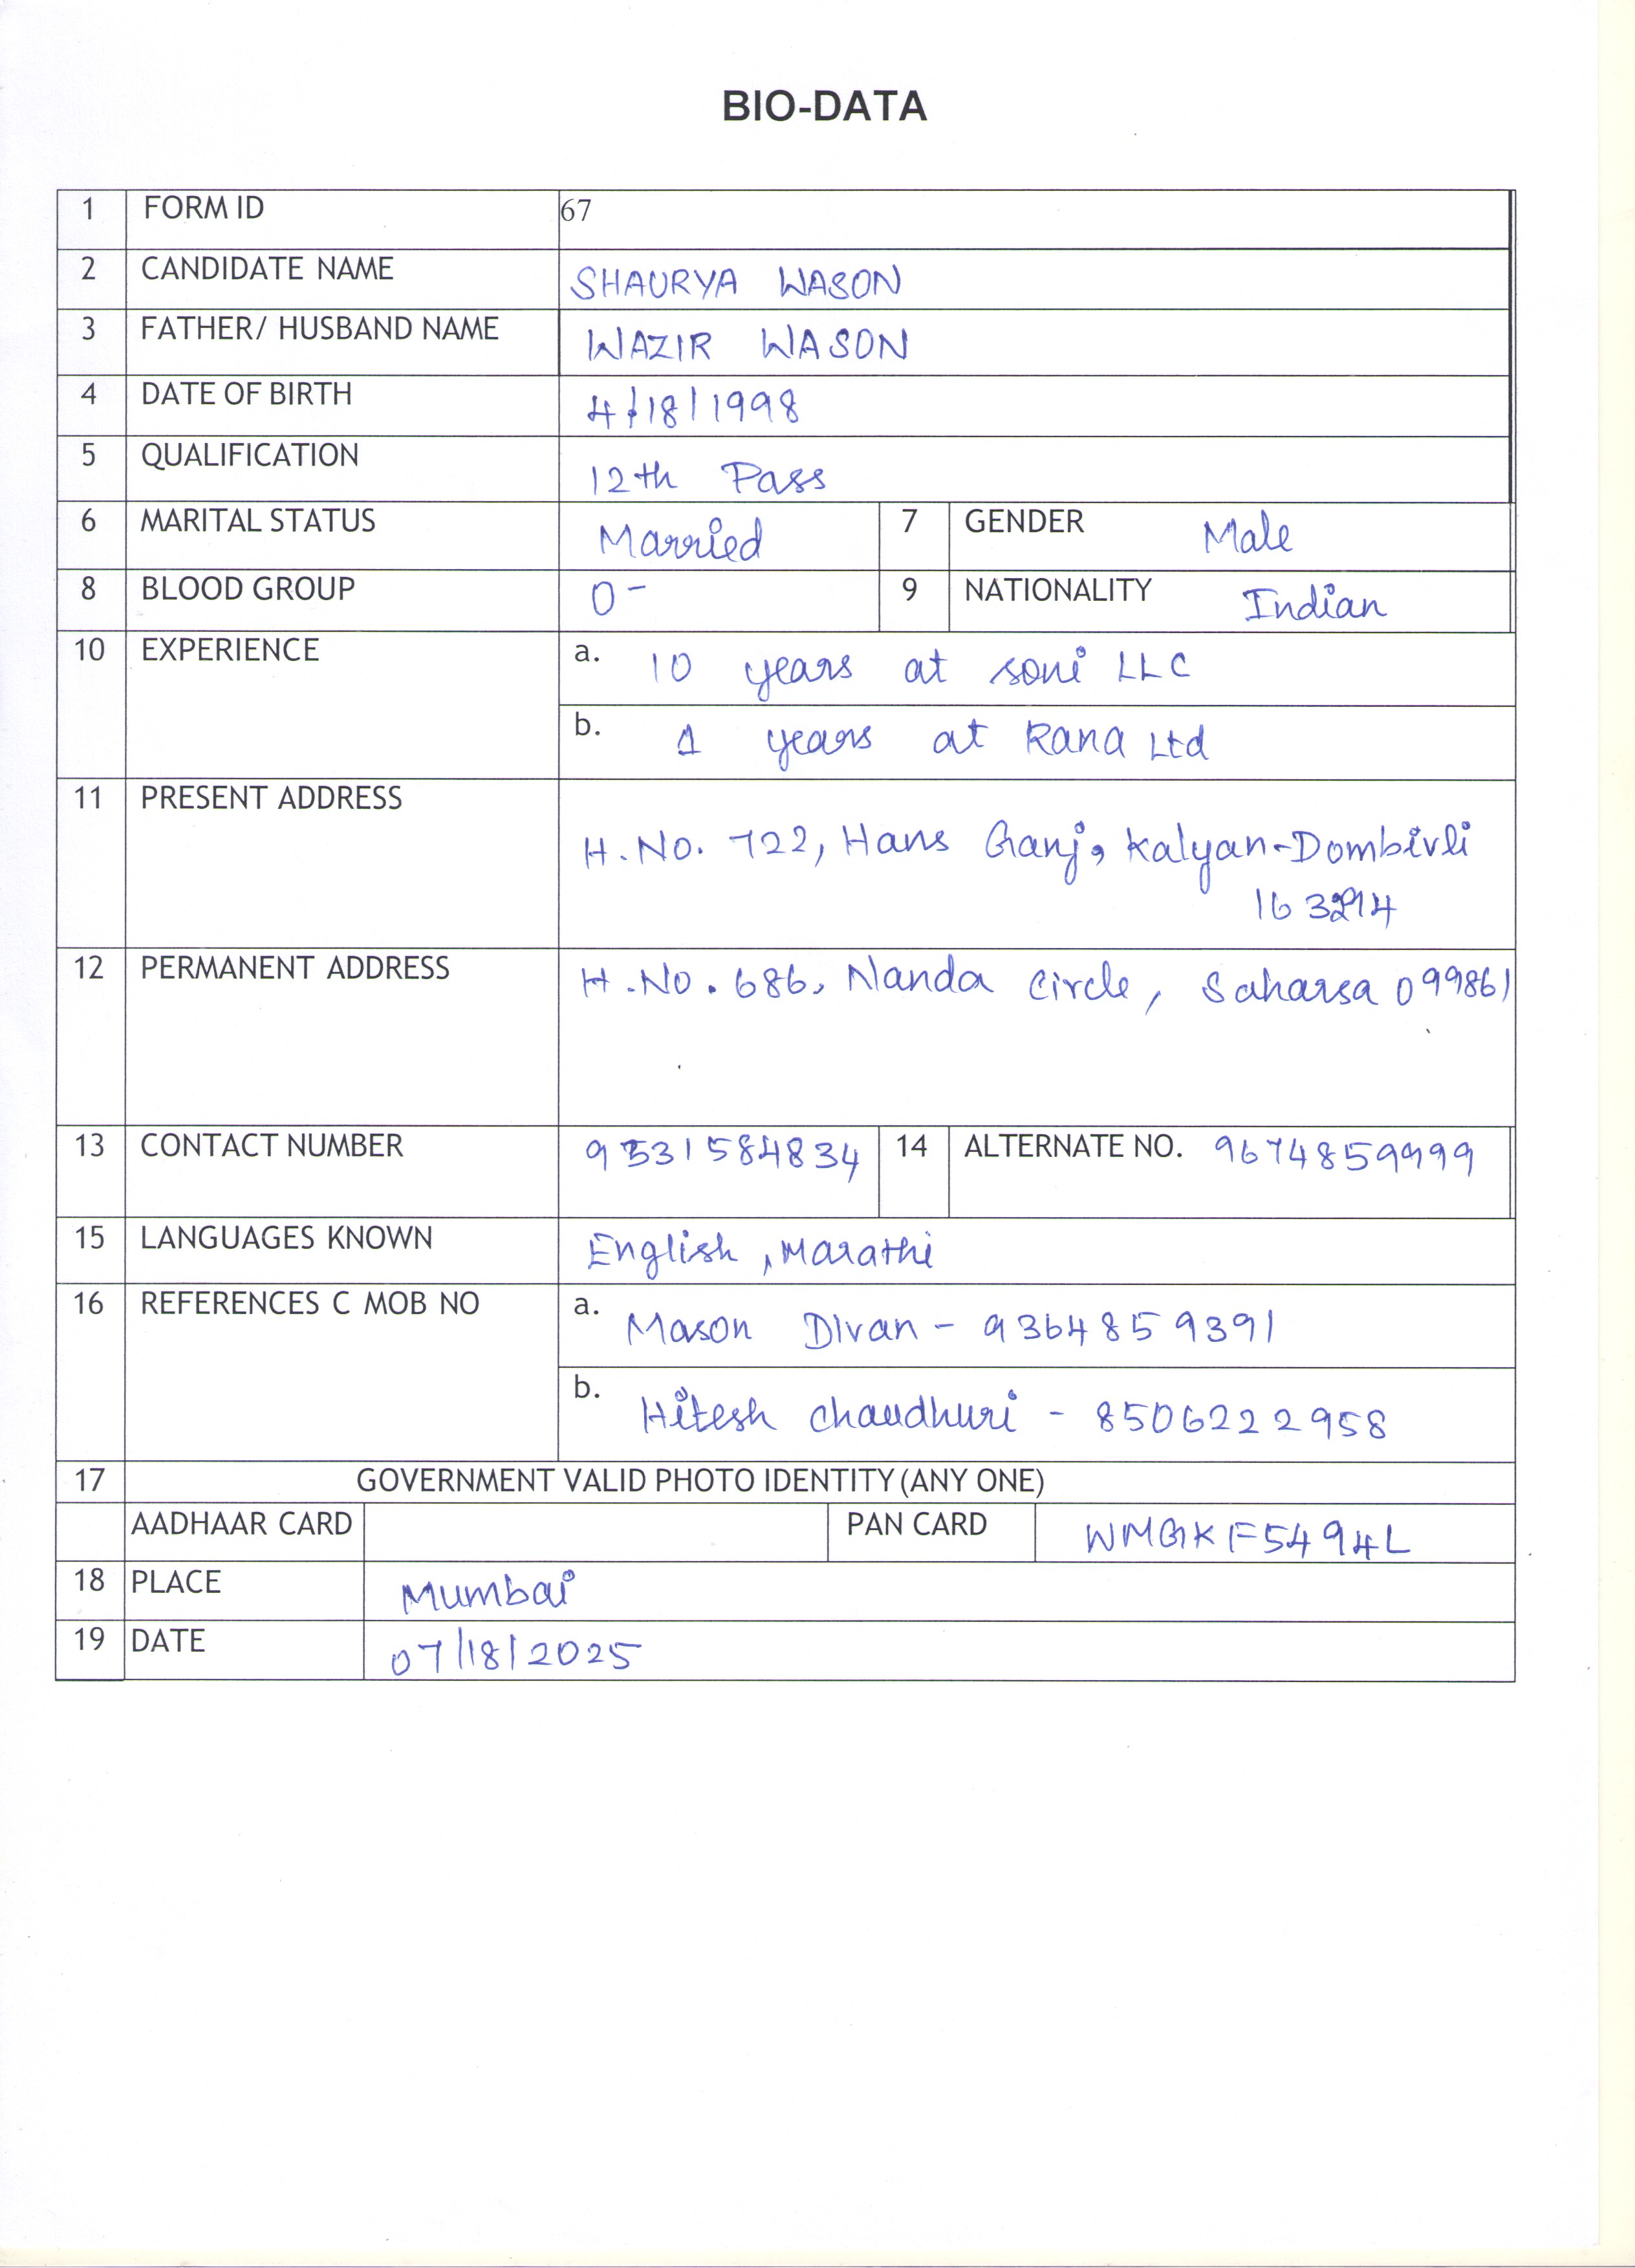 BIO-DATA
1 FORM ID 67
2 CANDIDATE NAME SHAURYA WASON
3 FATHER/ HUSBAND NAME WAZIR WASON
4 DATE OF BIRTH 4/18/1998
5 QUALIFICATION 12th Pass
6 MARITAL STATUS Married 7 GENDER Male
8 BLOOD GROUP O- 9 NATIONALITY Indian
10 EXPERIENCE a. 10 years at soni LLC
b. 1 years at Rana Ltd
11 PRESENT ADDRESS
H.No. 722, Hans Ganj, Kalyan-Dombivli
12 PERMANENT ADDRESS H.No. 686, Nanda Circle, Saharsa 099861
13 CONTACT NUMBER 9531584834 14 ALTERNATE NO. 9674859999
15 LANGUAGES KNOWN English, Marathi
16 REFERENCES C MOB NO a. Mason Divan - 9364859391
b. Hitesh Chaudhuri - 8506222958
17 GOVERNMENT VALID PHOTO IDENTITY (ANY ONE)
AADHAAR CARD PAN CARD WMGKF5494L
18 PLACE Mumbai
19 DATE 07/18/2025